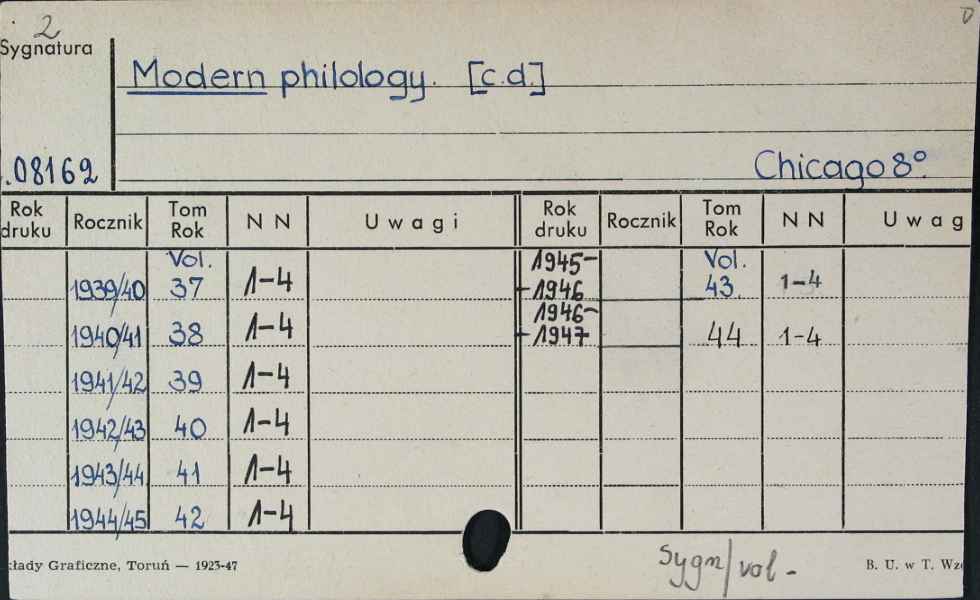 2
Sygnatura
Modern philology. [c.d.]
.08162
Chicago 8°.
Rok druku Rocznik Tom Rok N N Uwagi Rok druku Rocznik Tom Rok N N Uwag
Vol. 1945- Vol.
1939/40 37 1-4 -1946 43 1-4
1946-
1940/41 38 1-4 -1947 44 1-4
1941/42 39 1-4
1942/43 40 1-4
1943/44 41 1-4
1944/45 42 1-4
kłady Graficzne, Toruń — 1923-47
Sygn/vol -
B. U. w T. Wzó